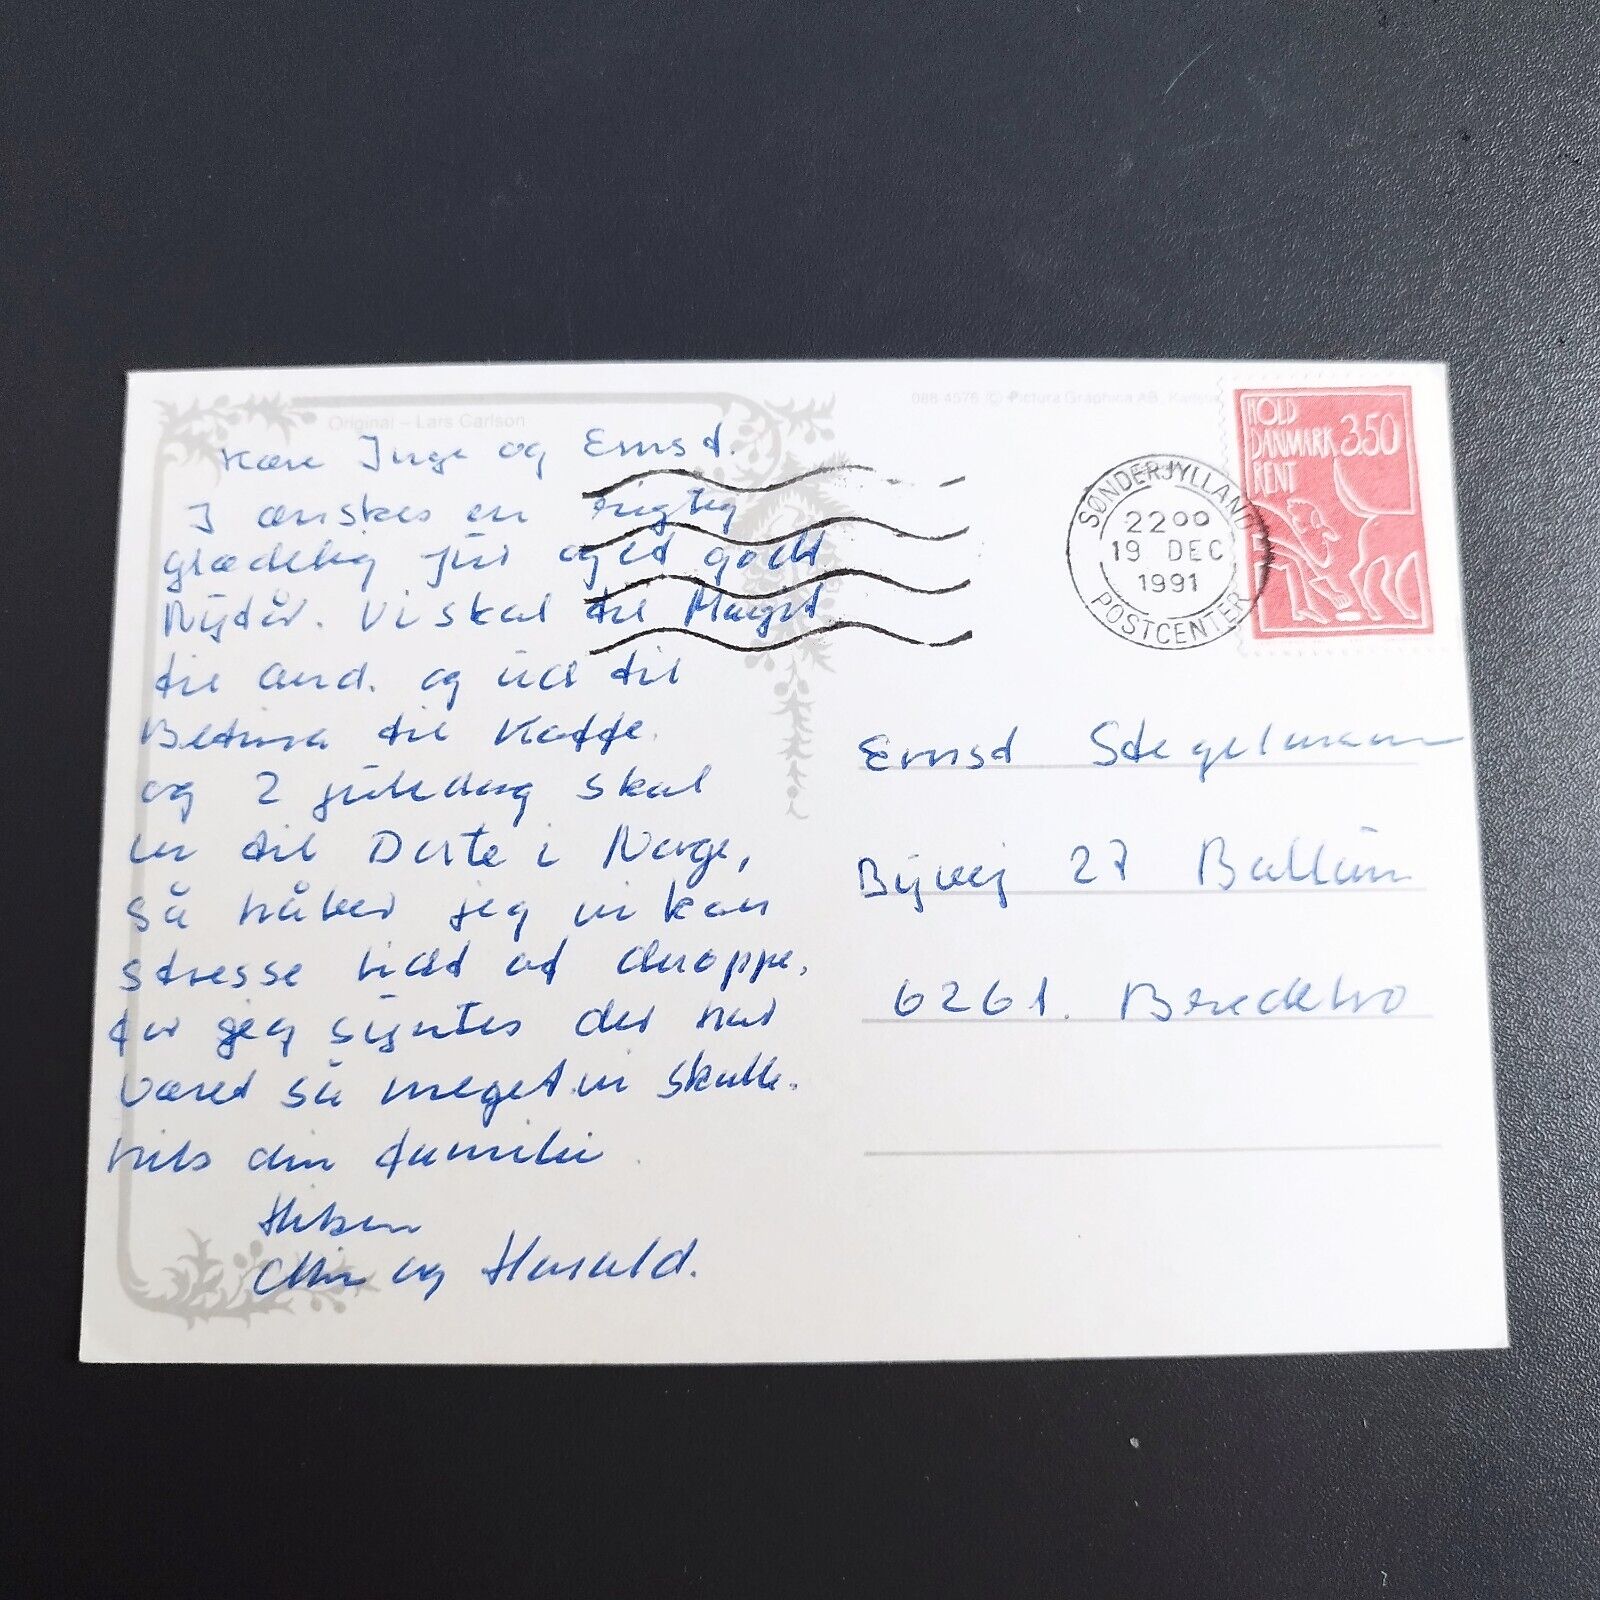 Original – Lars Carlson
088-4576 © Pictura Graphica AB,
HOLD
DANMARK 3.50
RENT
SØNDERJYLLANDS
22⁰⁰
19 DEC
1991
POSTCENTER
Kære Inge og Ernst.
I ønskes en rigtig
glædelig jul og et godt
Nytår. Vi skal til
til and. og ud til
Betina til Kaffe.
og 2 juledag skal
vi til Dorte i Norge,
så håber jeg vi kan
stresse lidt af deroppe,
for jeg syntes der har
været så meget vi skulle.
hils din familie.
Hilsen
og Harald.
Ernst Stegelmann
Byvej 27 Ballum
6261. Bredebro